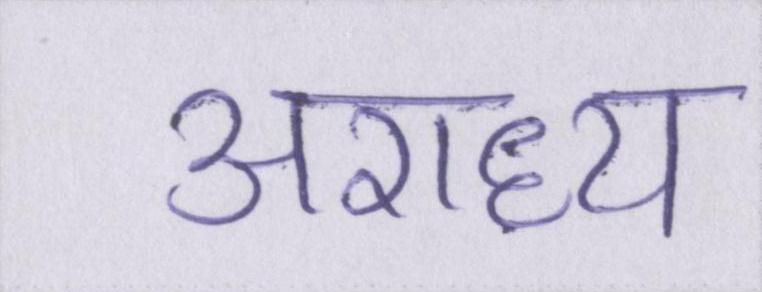 अराध्य